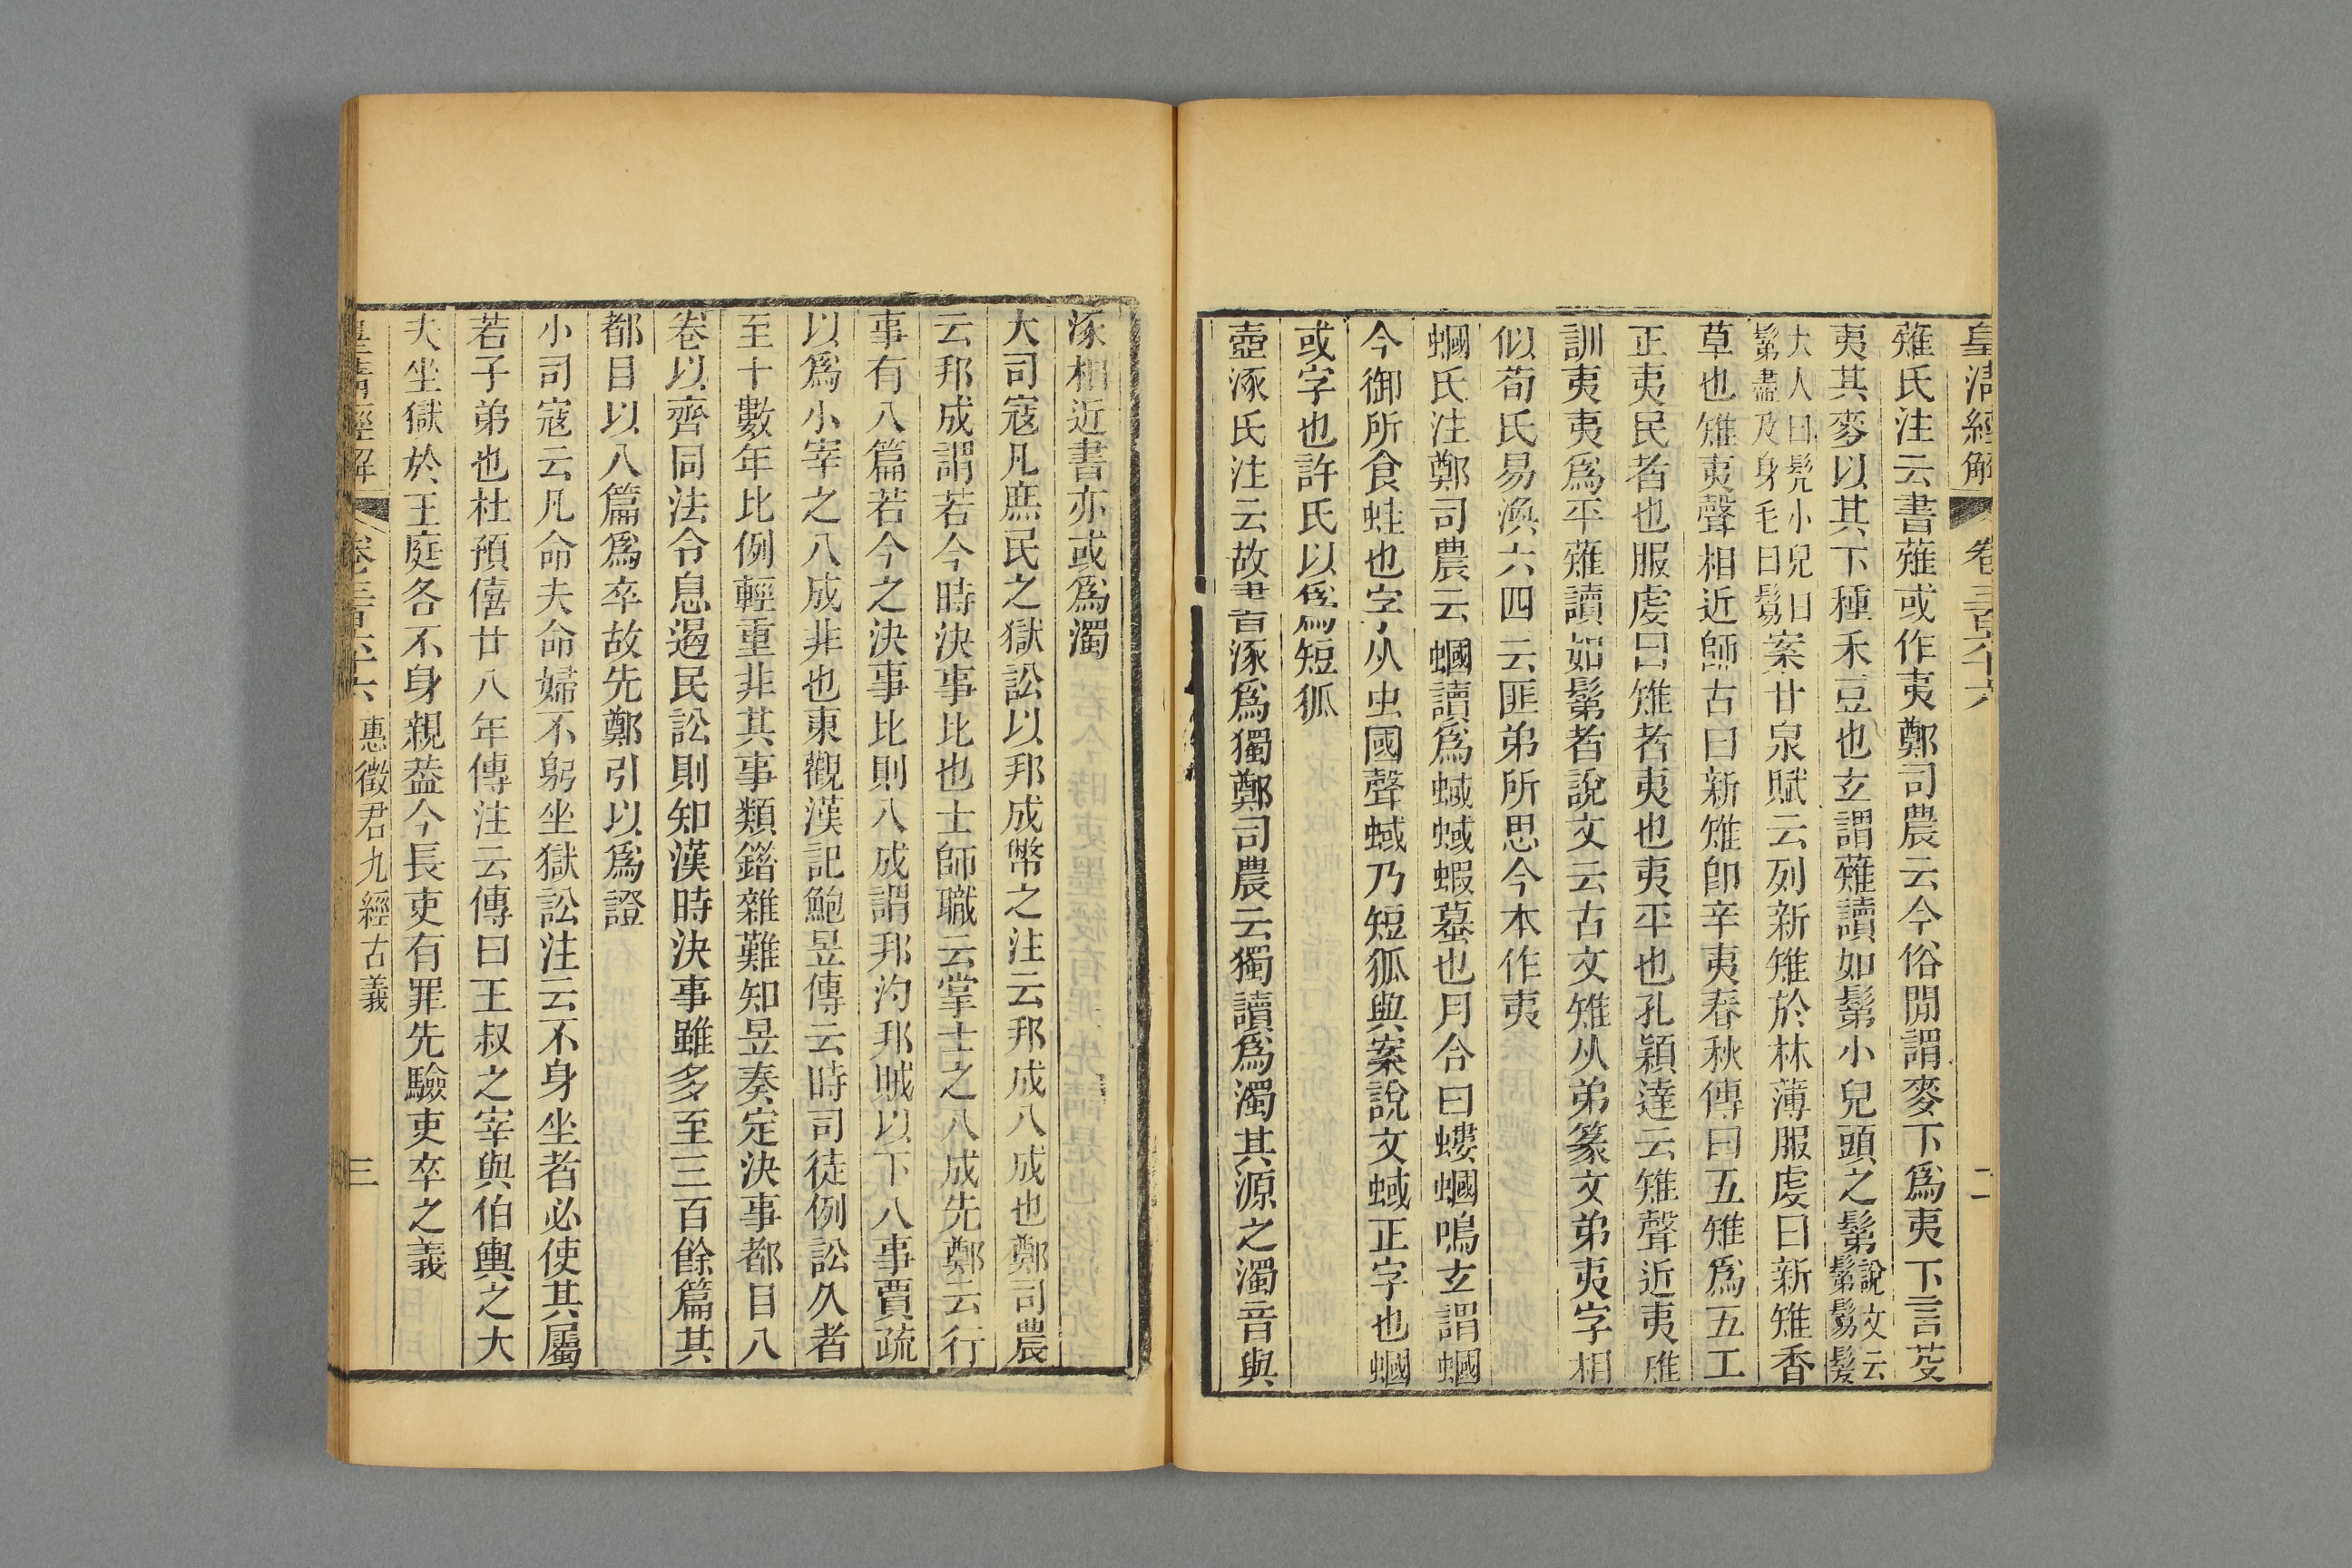 皇清經解 卷三百六十六 二
薙氏注云書薙或作夷鄭司農云今俗閒謂麥下爲夷下言芟
夷其麥以其下種禾豆也玄謂薙讀如鬀小兒頭之鬀說文云鬀鬄髮
大人曰髡小兒曰鬀盡及身毛曰鬄案甘泉賦云列新雉於林薄服虔曰新雉香
草也雉夷聲相近師古曰新雉卽辛夷春秋傳曰五雉爲五工
正夷民者也服虔曰雉者夷也夷平也孔穎達云雉聲近夷雉
訓夷夷爲平薙讀如鬀者說文云古文雉从弟篆文弟夷字相
似荀氏易渙六四云匪弟所思今本作夷
蟈氏注鄭司農云蟈讀爲蜮蜮蝦蟇也月令曰螻蟈鳴玄謂蟈
今御所食蛙也字从虫國聲蜮乃短狐與案說文蜮正字也蟈
或字也許氏以爲短狐
壺涿氏注云故書涿爲獨鄭司農云獨讀爲濁其源之濁音與
涿相近書亦或爲濁
大司寇凡庶民之獄訟以邦成弊之注云邦成八成也鄭司農
云邦成謂若今時決事比也士師職云掌士之八成先鄭云行
事有八篇若今之決事比則八成謂邦汋邦賊以下八事賈疏
以爲小宰之八成非也東觀漢記鮑昱傳云時司徒例訟久者
至十數年比例輕重非其事類錯雜難知昱奏定決事都目八
卷以齊同法令息遏民訟則知漢時決事雖多至三百餘篇其
都目以八篇爲卒故先鄭引以爲證
小司寇云凡命夫命婦不躬坐獄訟注云不身坐者必使其屬
若子弟也杜預僖廿八年傳注云傳曰王叔之宰與伯輿之大
夫坐獄於王庭各不身親葢今長吏有罪先驗吏卒之義
皇清經解 卷三百六十六 惠徵君九經古義 三